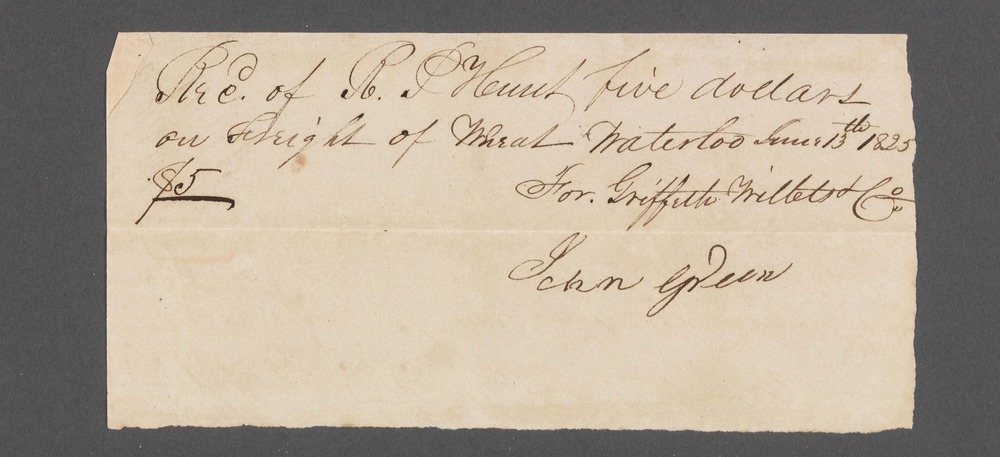 Rec'd. of R. P Hunt five dollars
on Freight of Wheat Waterloo June 13th 1825
$5 For. Griffith Willets & Co.
John Green